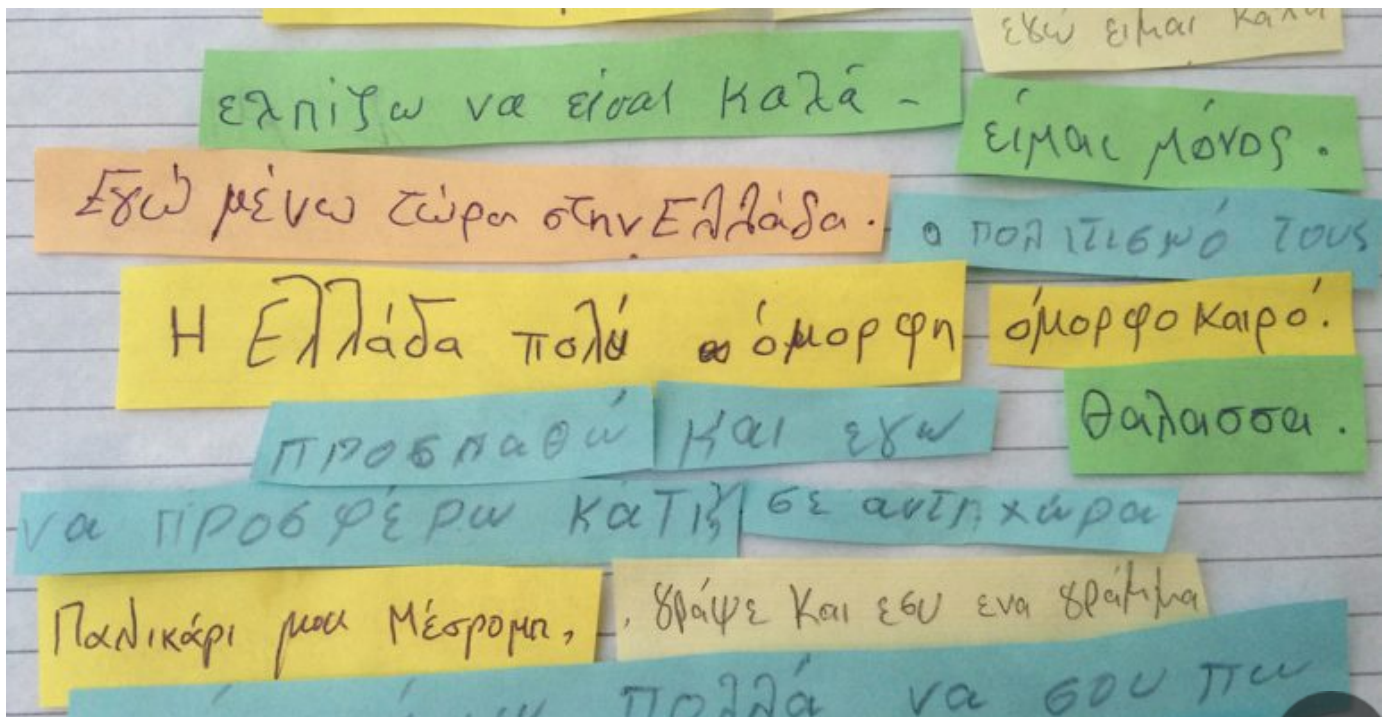 εγώ ειμαι καλα
ελπίζω να είσαι καλά -
είμαι μόνος.
Εγώ μένω τώρα στην Ελλάδα.
ο πολιτισμό τους
Η Ελλάδα πολύ όμορφη
όμορφο καιρό.
προσπαθώ και εγω
θαλασσα.
να προσφέρω κατι σε αυτη χώρα
Παλικάρι μου
. γράψε και εσυ ενα γράμμα
πολλά να σου πω